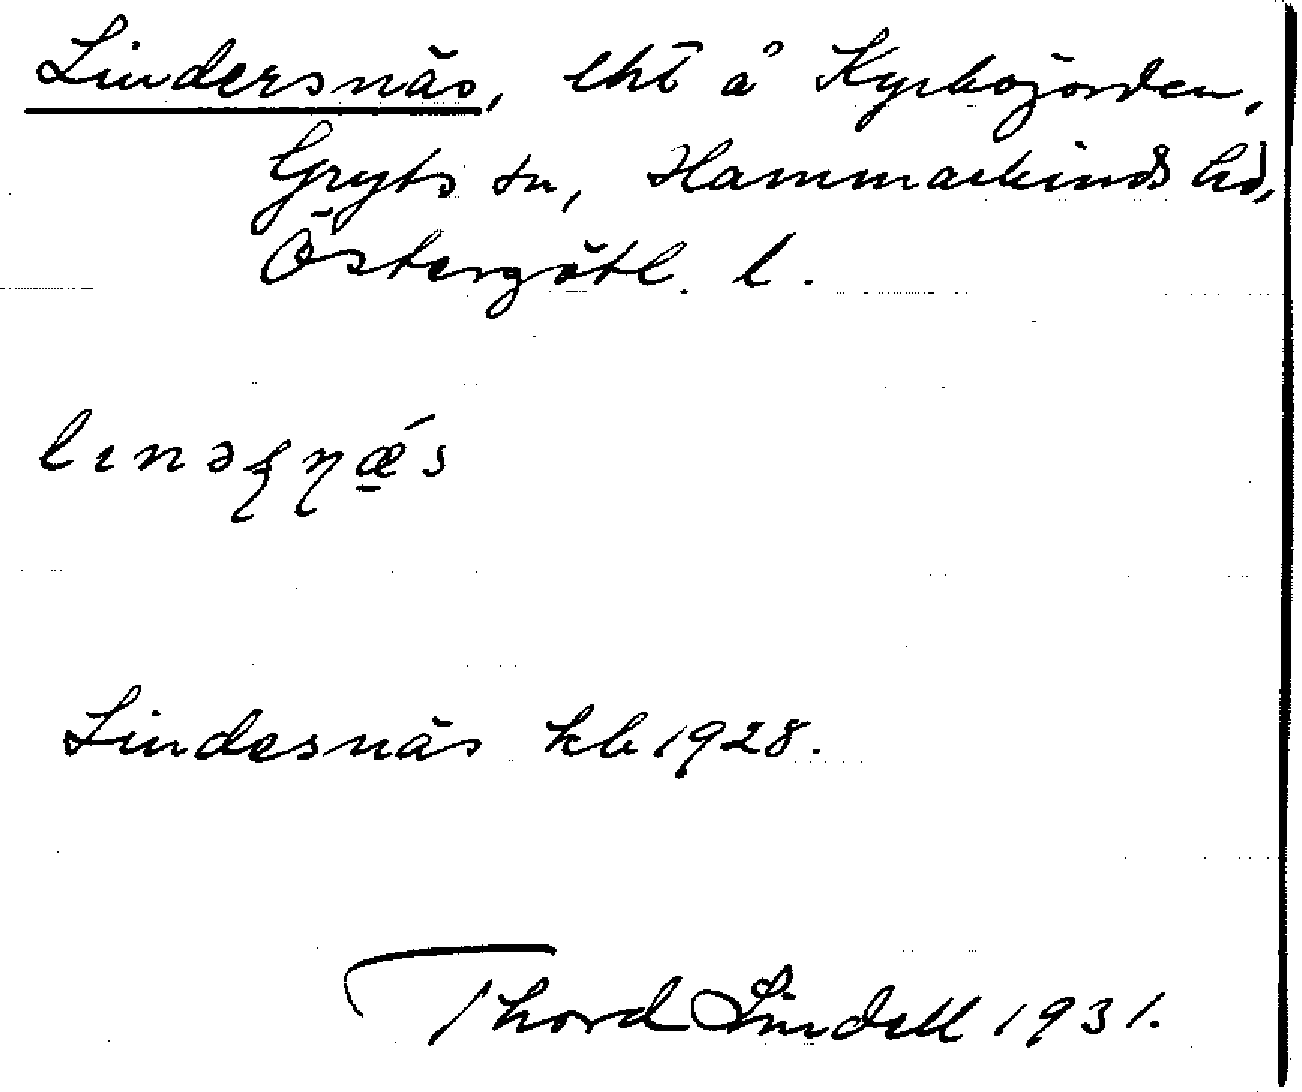 Lindersnäs, lht å Kyrkojorden,
Gryts sn, Hammarkinds hd,
Östergötl. l.
Lindesnäs kb 1928.
Thord Lindell 1931.